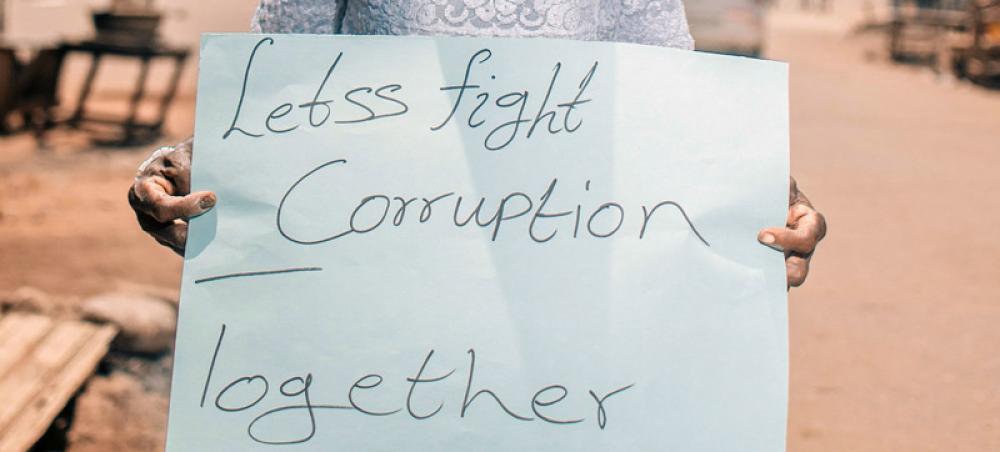 Letss fight
Corruption
Together